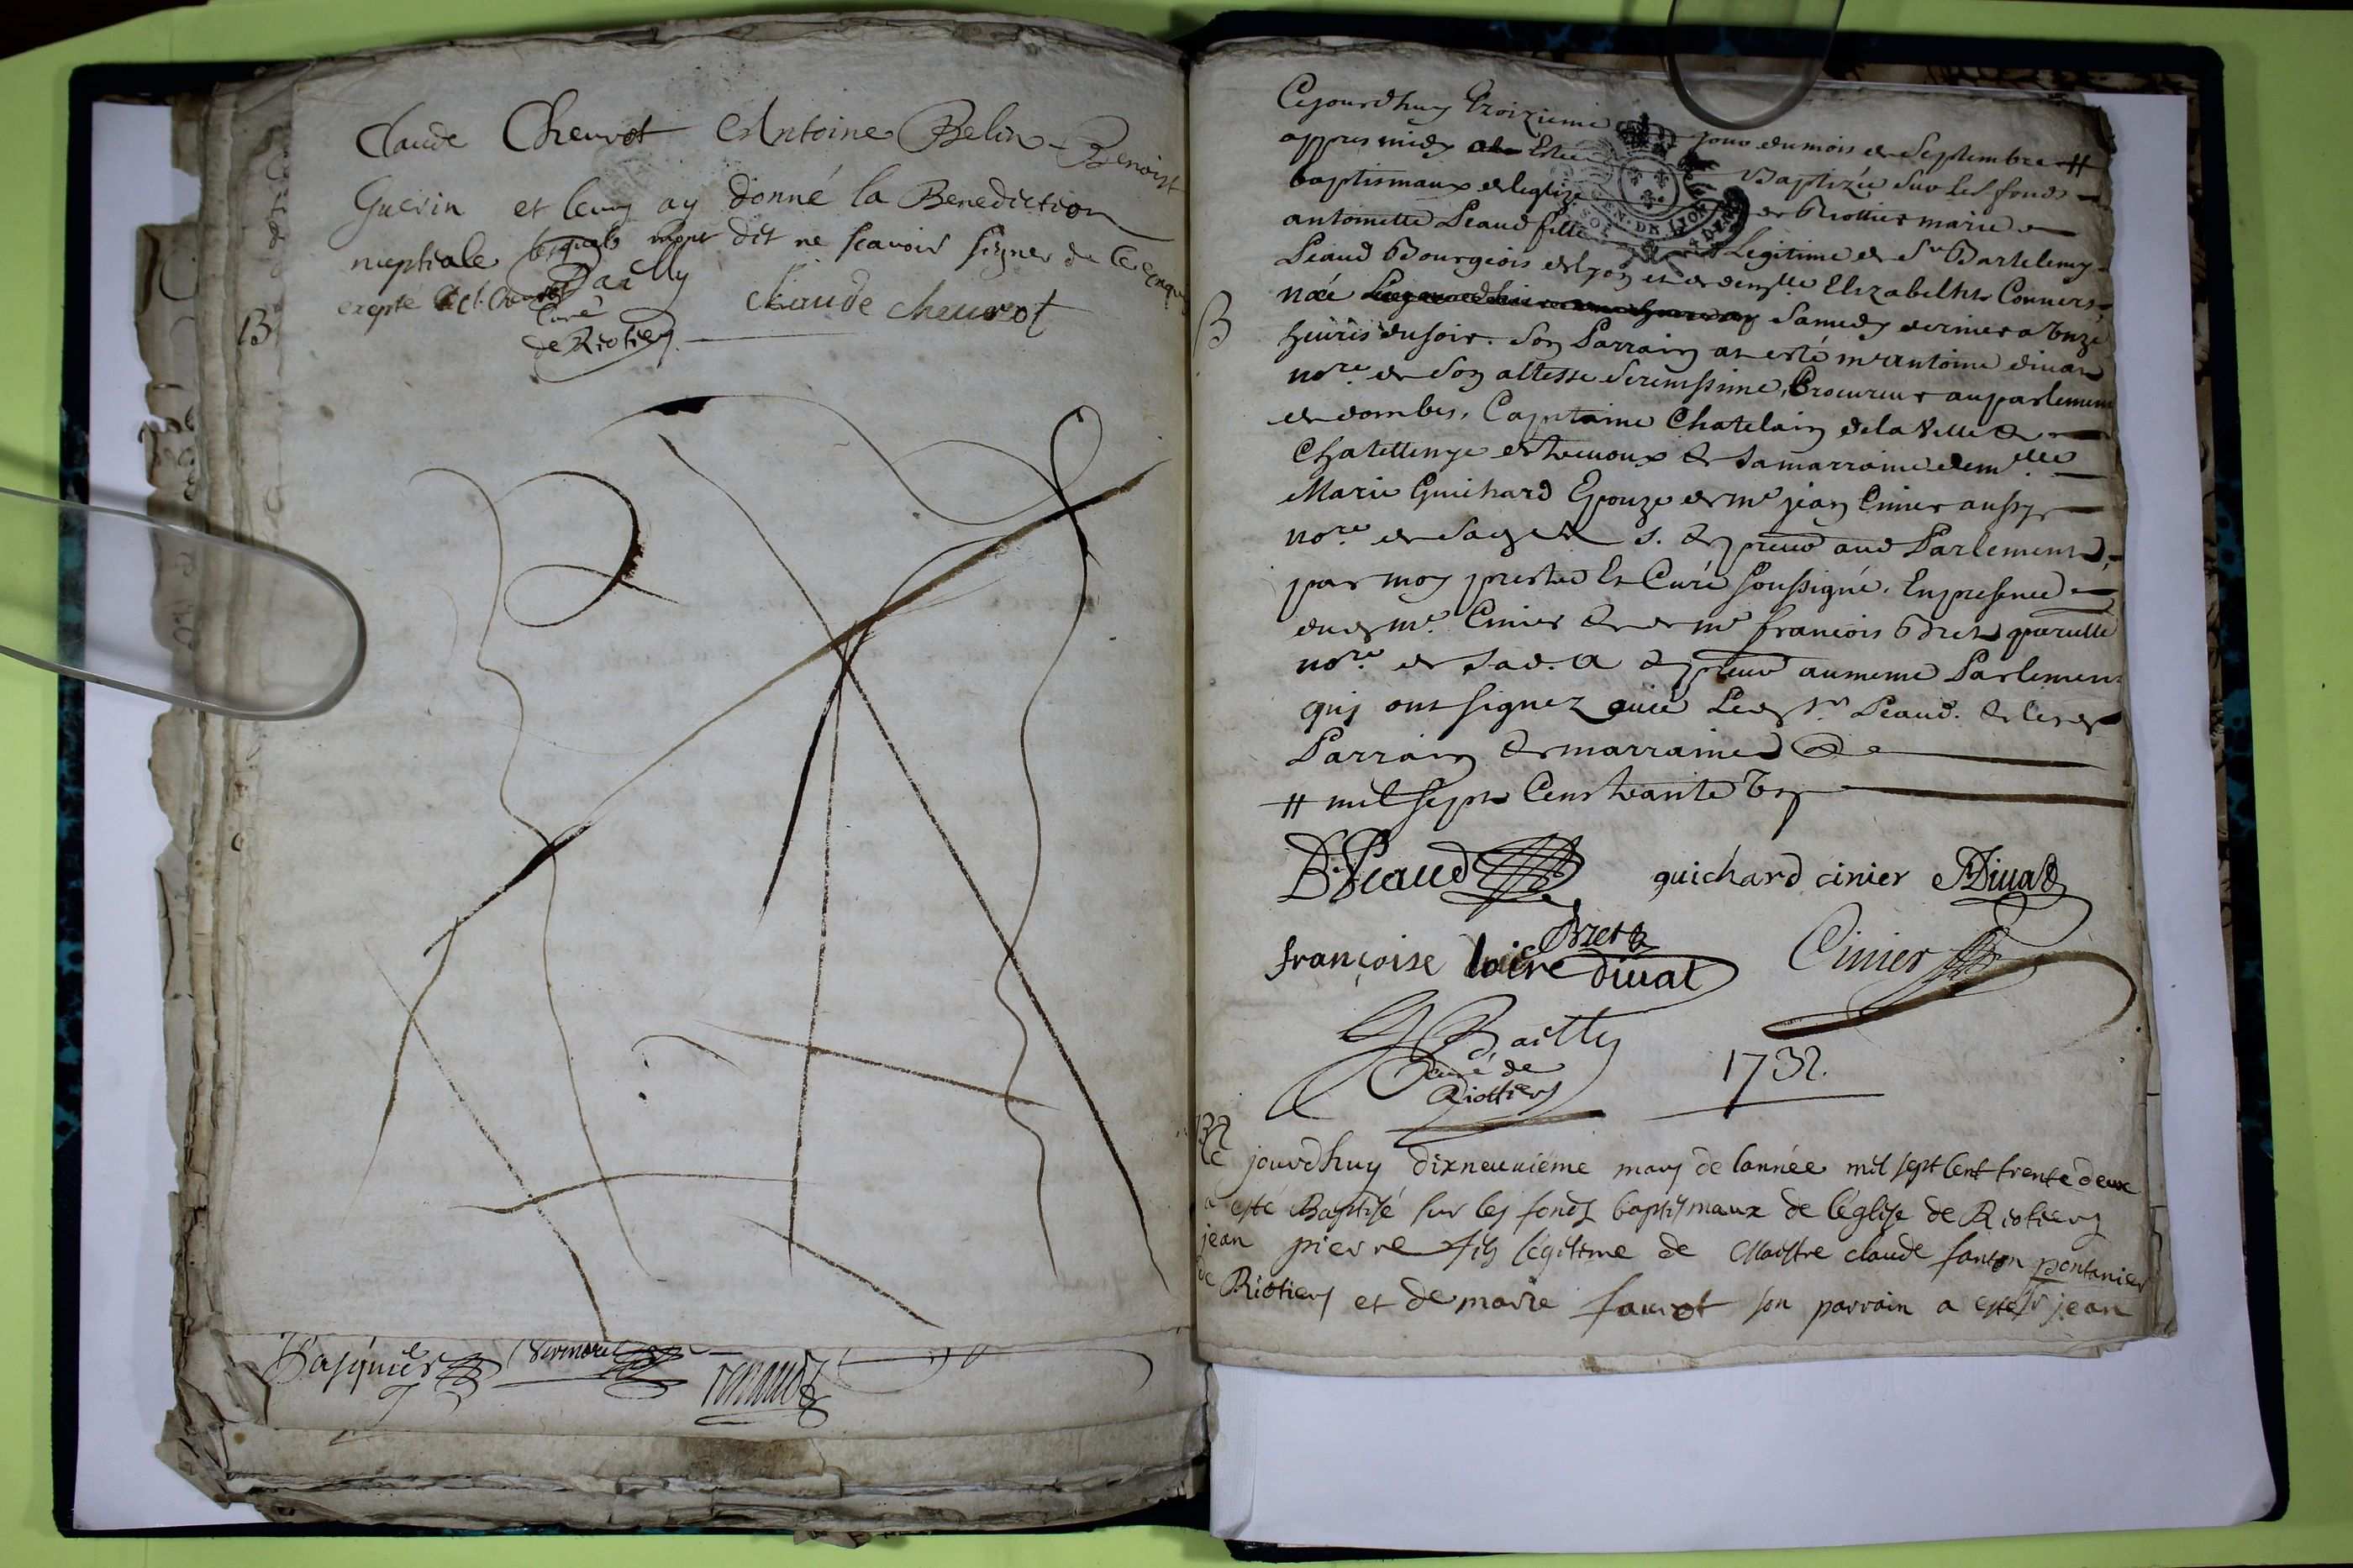 Claude Cheurot Antoine Belin Benoist
Guerin et leur ay donné la Benediction
nuptiale lesquels mont dit ne scavoir signer de ce enquis
excepté Cl. Cheurot
Bailly
Curé
de Riotiers
Claude cheurot
B
Pasquier
renaud
Cejourdhuy troizieme jour du mois de Septembre #
appres midy a Esté Baptizée sur les fonds
baptismaux de leglize de Riottier marie
antoinette Peaud fille Legitime de Sr Bartelemy
Peaud Bourgeois de lyon et de demlle Elizabeth Conners
née samedy dernier a unze
heures du soir. Son Parrain at esté me antoine diuat
nore. de Son altesse Serenissime, Procureur au parlement
de dombes, Capitaine Chatelain de la Ville &
Chatellenye de treuoux & sa marraine demelle
Marie Guichard Epouze de me jean Cinier aussy
nore. de Sad. A. S. & procur aud Parlement,
par moy prestre Et Curé soussigné. En presence
dud me. Cinier & de me françois Bret
nore. de Sad. A & procur au meme Parlement
qui ont signez auec Led Sr. Peaud. & lesd
Parrain & marraine
# mil sept Cens trante Un
B. Peaud guichard cinier ADiuat
Bret
françoise loire diuat Cinier
Bailly
curé de
Riottiers
1732.
B
Ce jourdhuy dixneuuiéme mars de lannée mil sept cent trente deux
a esté Baptisé sur les fonds baptismaux de léglise de Riotiers
jean pierre fils légitime de Maistre claude fanton pontanier
de Riotiers et de marie faurot son parrain a esté sr jean